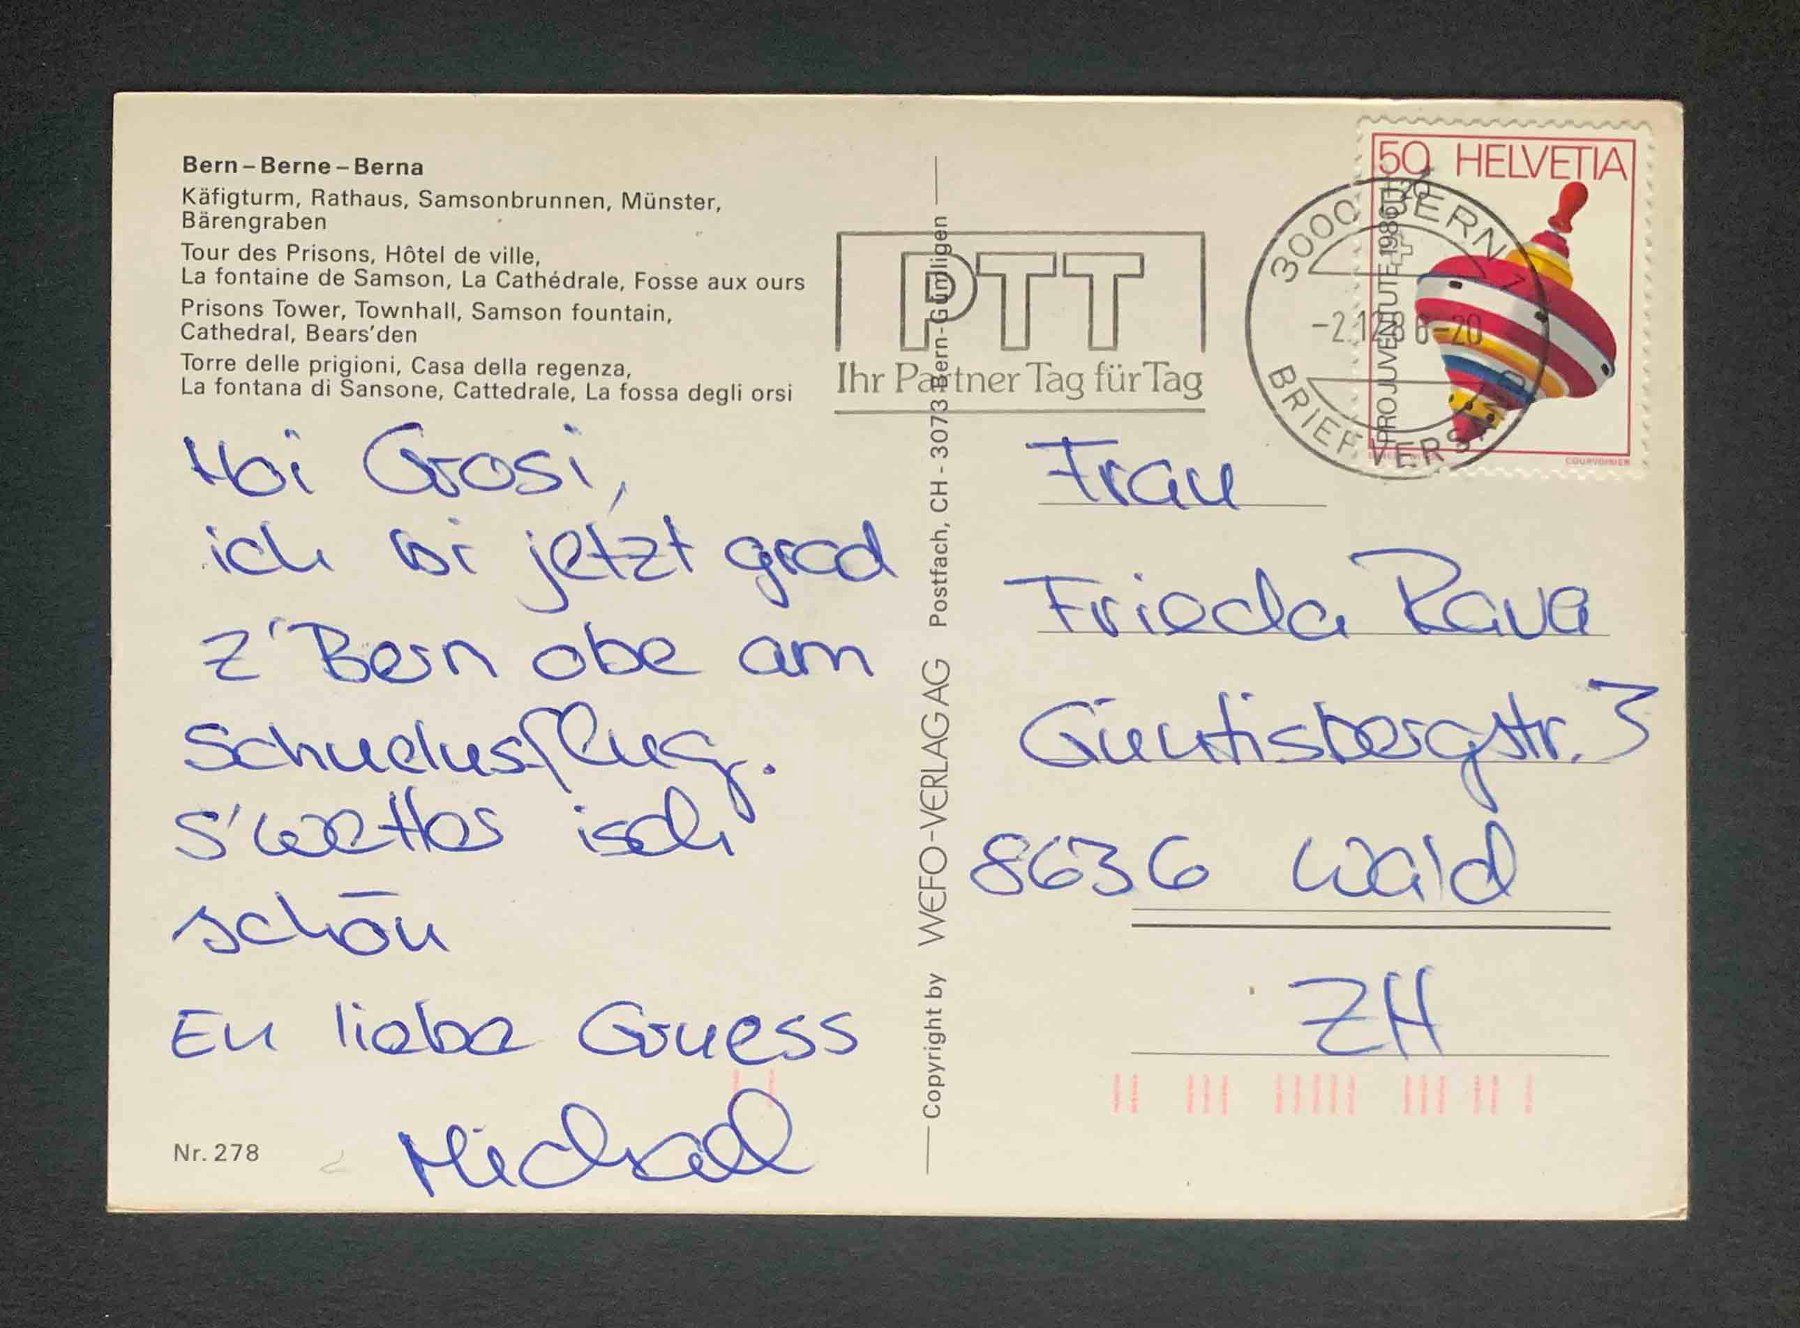 Bern – Berne – Berna
Käfigturm, Rathaus, Samsonbrunnen, Münster,
Bärengraben
Tour des Prisons, Hôtel de ville,
La fontaine de Samson, La Cathédrale, Fosse aux ours
Prisons Tower, Townhall, Samson fountain,
Cathedral, Bears'den
Torre delle prigioni, Casa della regenza,
La fontana di Sansone, Cattedrale, La fossa degli orsi
Hoi Grosi,
ich bi jetzt grad
z'Bern obe am
Schuelusflug.
S'wetter isch
schön
En liebe Gruess
Michael
Nr. 278
Copyright by WEFO-VERLAG AG Postfach, CH - 3073 Bern-Gümligen
PTT
Ihr Partner Tag für Tag
3000 BERN 1
-2.12.86-20
BRIEFVERSAND
50+20 HELVETIA
PRO JUVENTUTE 1986
COURVOISIER
Frau
Frieda Rava
Güntisbergstr. 3
8636 Wald
ZH